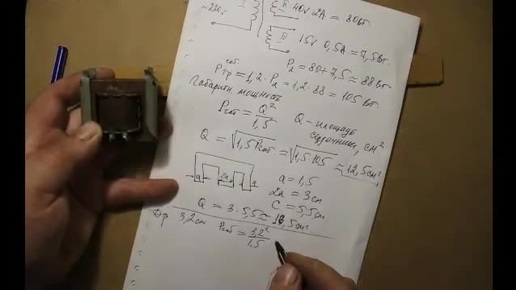 ~220V
II 40V 2A = 80Вт.
III 15V 0,5A = 7,5Вт.
P₂ = 80 + 7,5 ≈ 88 Вт
Pтр = 1,2 · P₂ = 1,2 · 88 = 105 Вт.
Габаритн. мощность
Pгаб = Q²/1,5 Q - площадь сердечника, см²
Q = √1,5 Pгаб = √1,5·105 ≈ 12,5см²
a = 1,5
2a = 3см
C = 5,5см
Q = 3 · 5,5 ≈ 16,5см²
3,2см Pгаб = 3,2²/1,5